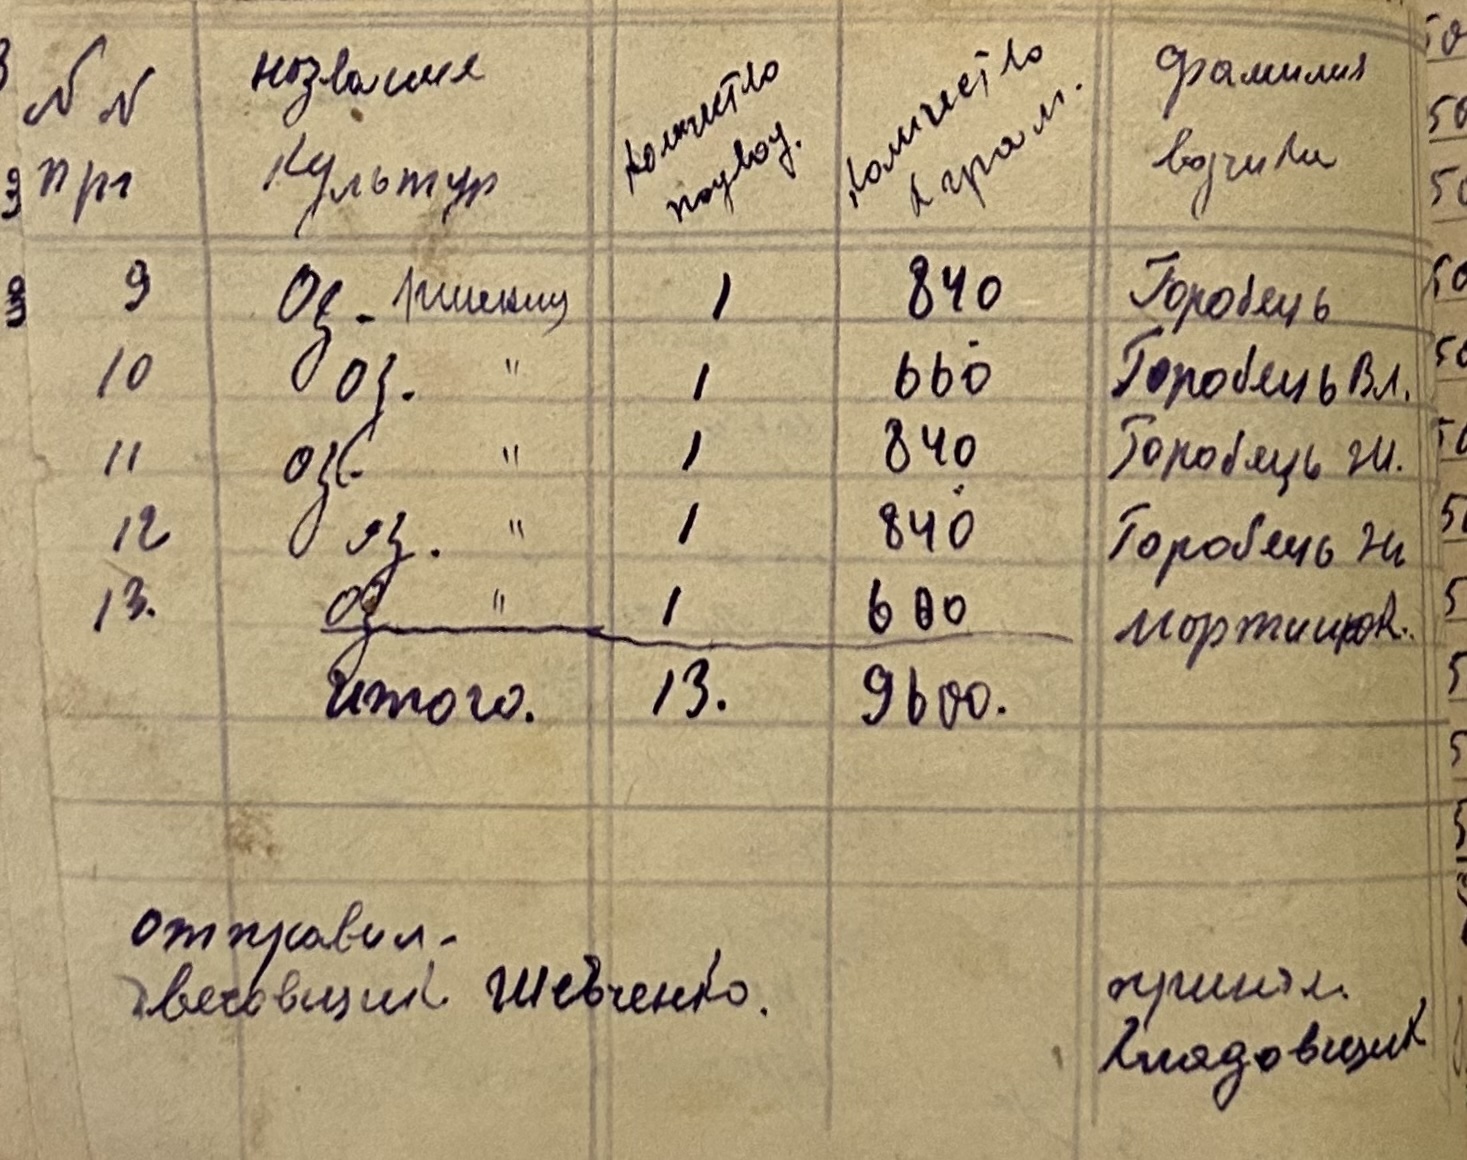 № № название количество количество фамилия
прг культур подвод. кграм. возчика
9 Оз. пшениц 1 840 Горобець
10 оз. " 1 660 Горобець Вл.
11 оз. " 1 840 Горобець Ж.
12 оз. " 1 840 Горобець Ж
13. оз " 1 600
Итого. 13. 9600.
отправил-
весовщик Шевченко.
принял.
Кладовщик